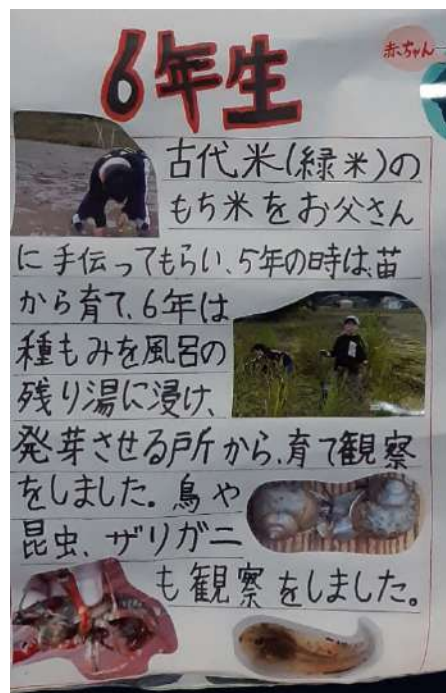 赤ちゃん
6年生
古代米(緑米)の
もち米をお父さん
に手伝ってもらい、5年の時は、苗
から育て、6年は
種もみを風呂の
残り湯に浸け、
発芽させる戸所から、育て観察
をしました。鳥や
昆虫、ザリガニ
も観察をしました。